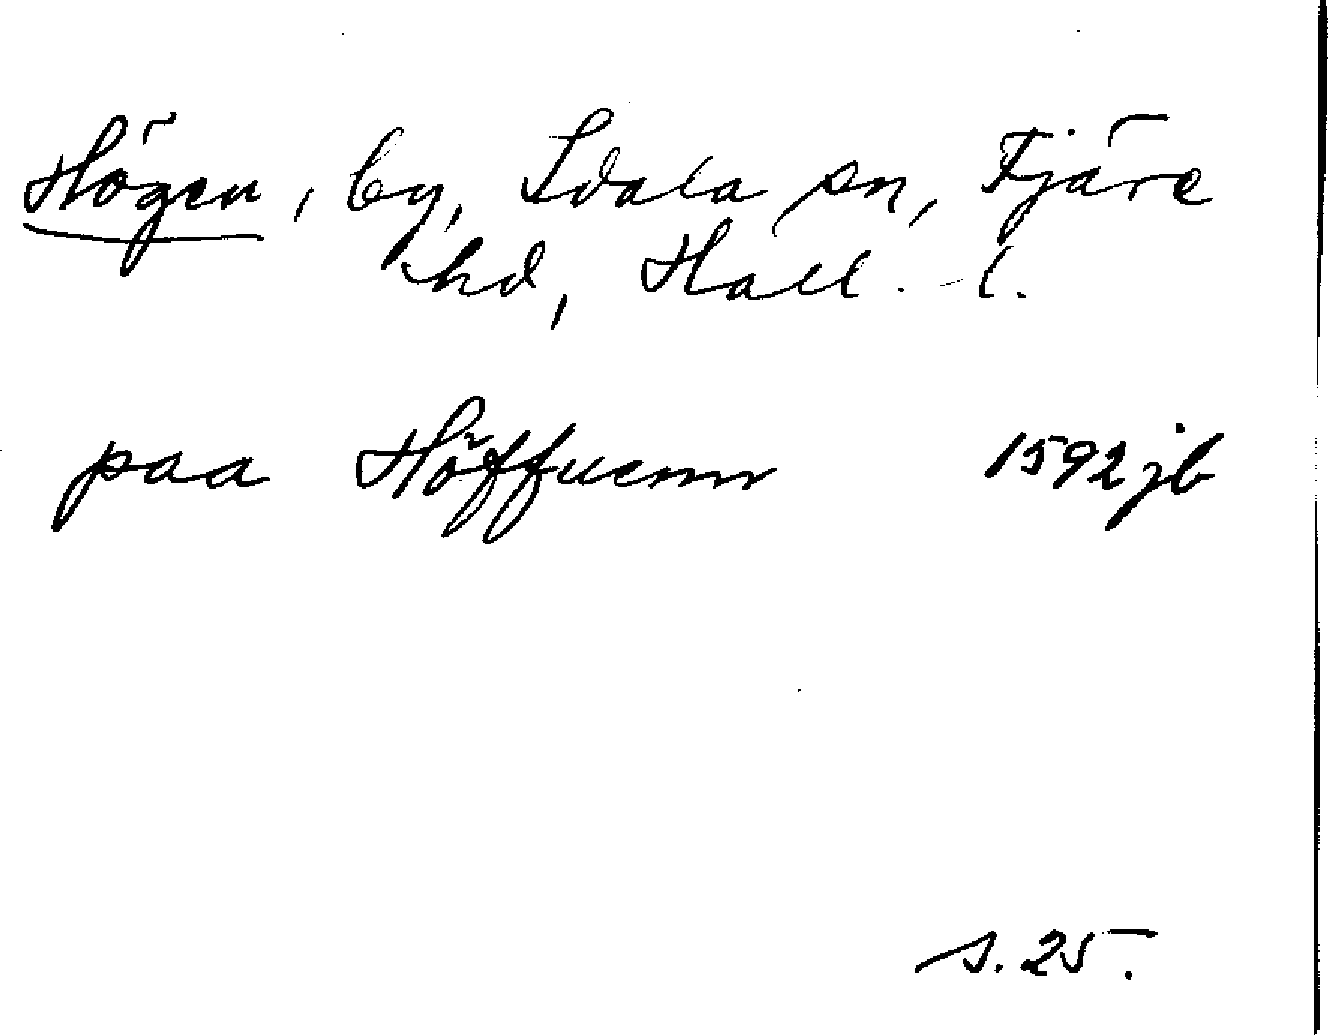 Högen, by, Idala sn, Fjäre
hd, Hall. l.
paa Höffuenn 1592 jb
s. 25.